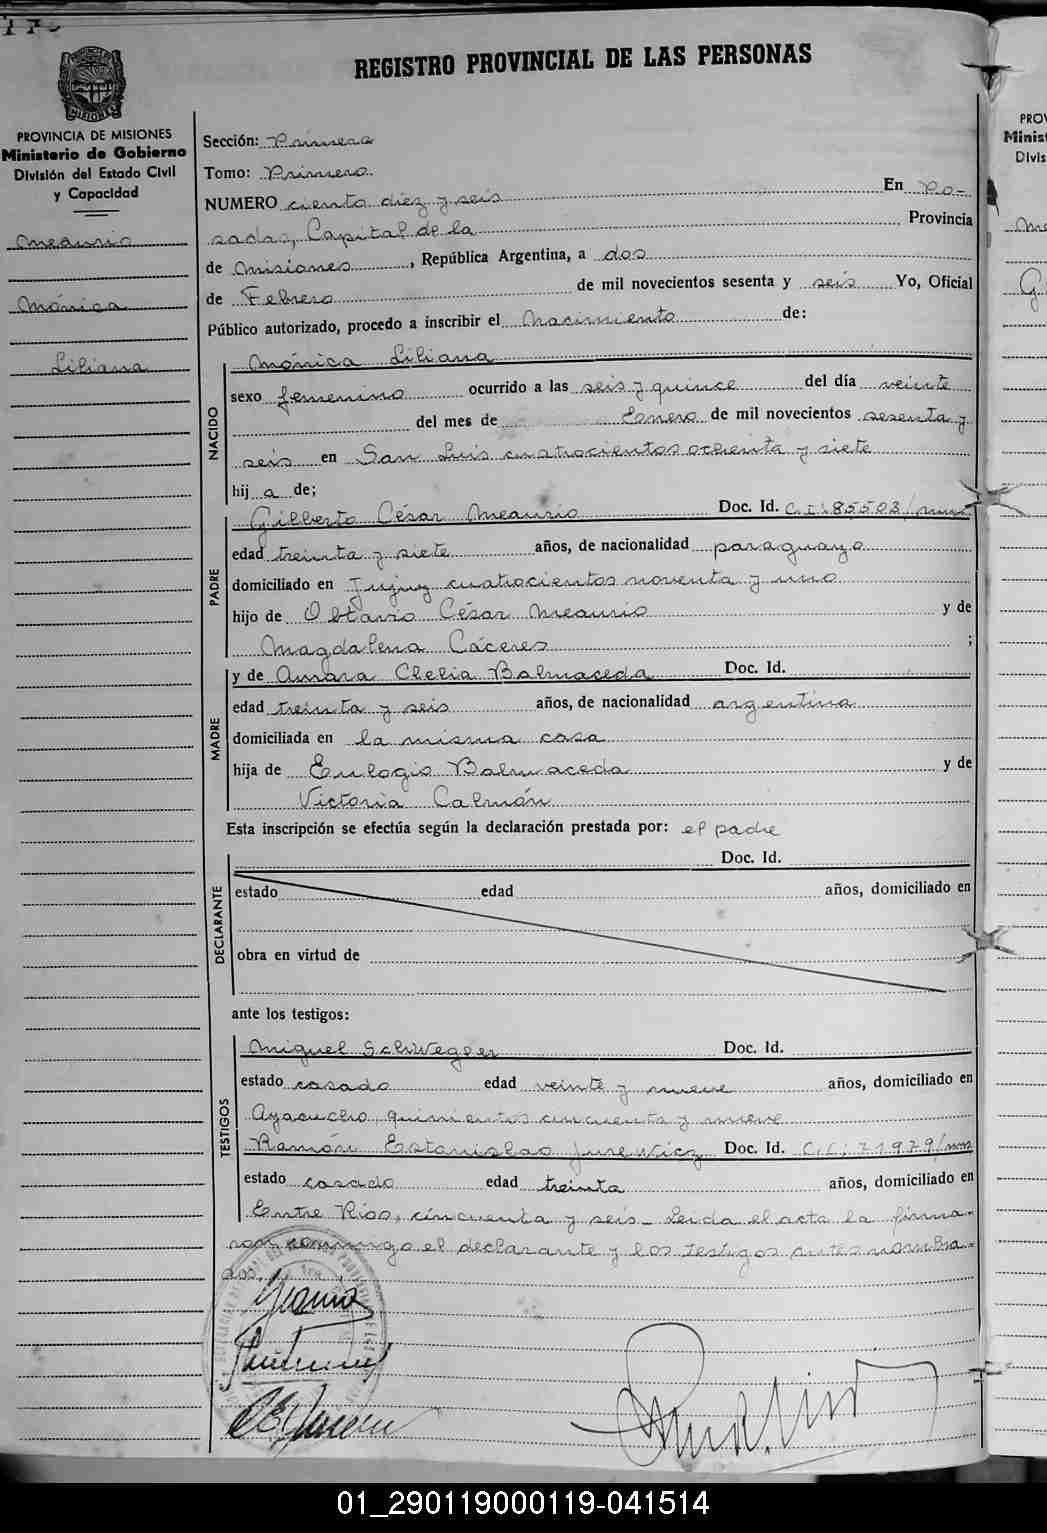 REGISTRO PROVINCIAL DE LAS PERSONAS
PROVINCIA DE MISIONES
Ministerio de Gobierno
División del Estado Civil
y Capacidad
Meaurio
Mónica
Liliana
Sección: Primera
Tomo: Primero.
NUMERO ciento diez y seis En Po-
sadas, Capital de la Provincia
de Misiones, República Argentina, a dos
de Febrero de mil novecientos sesenta y seis Yo, Oficial
Público autorizado, procedo a inscribir el Nacimiento de:
NACIDO
Mónica Liliana
sexo femenino ocurrido a las seis y quince del día veinte
del mes de Enero de mil novecientos sesenta y
seis en San Luis cuatrocientos ochenta y siete
hij a de;
PADRE
Gilberto César Meaurio Doc. Id. C.I. 85503/mnes
edad treinta y siete años, de nacionalidad paraguayo
domiciliado en Jujuy cuatrocientos noventa y uno
hijo de Obtavio César Meaurio y de
Magdalena Cáceres ;
MADRE
y de Amara Clelia Balmaceda Doc. Id.
edad treinta y seis años, de nacionalidad argentina
domiciliada en la misma casa
hija de Eulogio Balmaceda y de
Victoria Calmón
Esta inscripción se efectúa según la declaración prestada por: el padre
DECLARANTE
Doc. Id.
estado edad años, domiciliado en
obra en virtud de
ante los testigos:
TESTIGOS
Miguel Schwegler Doc. Id.
estado casado edad veinte y nueve años, domiciliado en
Ayacucho, quinientos cincuenta y nueve
Ramón Estanislao Jurewicz Doc. Id. C.I. 71979/mnes
estado casado edad treinta años, domiciliado en
Entre Ríos, cincuenta y seis_ Leida el acta la firma-
ron conmigo el declarante y los testigos antes nombra-
dos.
01_290119000119-041514